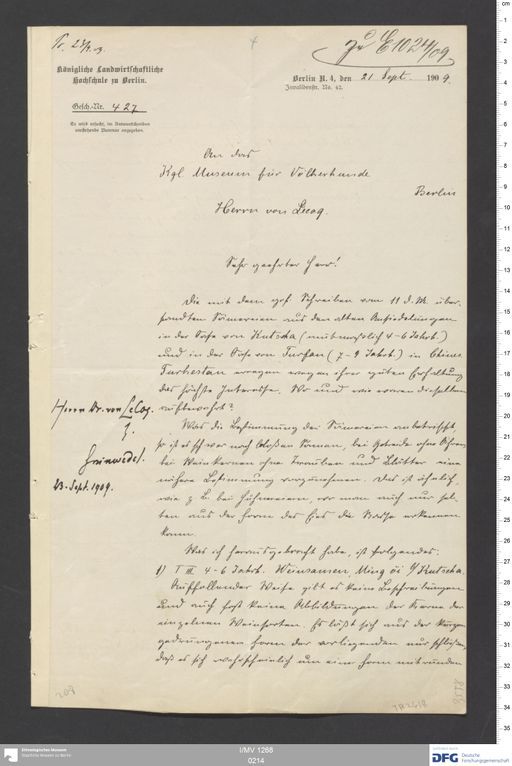 zu E 1024/09
Königliche Landwirtschaftliche
Hochschule zu Berlin.
Berlin N. 4, den 21 Sept. 1909.
Invalidenstr. No. 42.
Gesch.-Nr. 427
Es wird ersucht, im Antwortschreiben
vorstehende Nummer anzugeben.
An das
Kgl Museum für Völkerkunde
Berlin
Herrn von Lecoq.
Sehr geehrter Herr!
Die mit dem gefl. Schreiben vom 11 d. M. über-
sandten Sämereien aus den alten Ansiedelungen
in der Oase von Kutscha (mutmasslich 4-6 Jahrh.)
und in der Oase von Turfan (7-9 Jahrh.) in Chines.
Turkestan erregen wegen ihrer guten Erhaltung
das höchste Interesse. Wo und wie waren dieselben
aufbewahrt?
Was die Bestimmung der Sämereien anbetrifft,
so ist es schwer nach bloßen Samen, bei Getreide ohne Ähren,
bei Weinkernen ohne Trauben und Blätter eine
nähere Bestimmung vorzunehmen. Das ist ähnlich,
wie z. B. bei Hühnereiern, wo man auch nur sel-
ten aus der Form des Eies die Rasse erkennen
kann.
Was ich herausgebracht habe, ist folgendes:
1) T III 4-6 Jahrh. Weinsamen, Ming öi b/ Kutscha.
Auffallender Weise gibt es keine Beschreibungen
und auch fast keine Abbildungen der Kerne der
einzelnen Weinsorten. Es läßt sich aus der kurzen
gedrungenen Form der vorliegenden nur schließen,
daß es sich wahrscheinlich um eine Form mit runden
Herrn Dr. von LeCoq.
Grünwedel.
23. Sept. 1909.
Ethnologisches Museum
Staatliche Museen zu Berlin
I/MV 1268
0214
DFG
Deutsche
Forschungsgemeinschaft